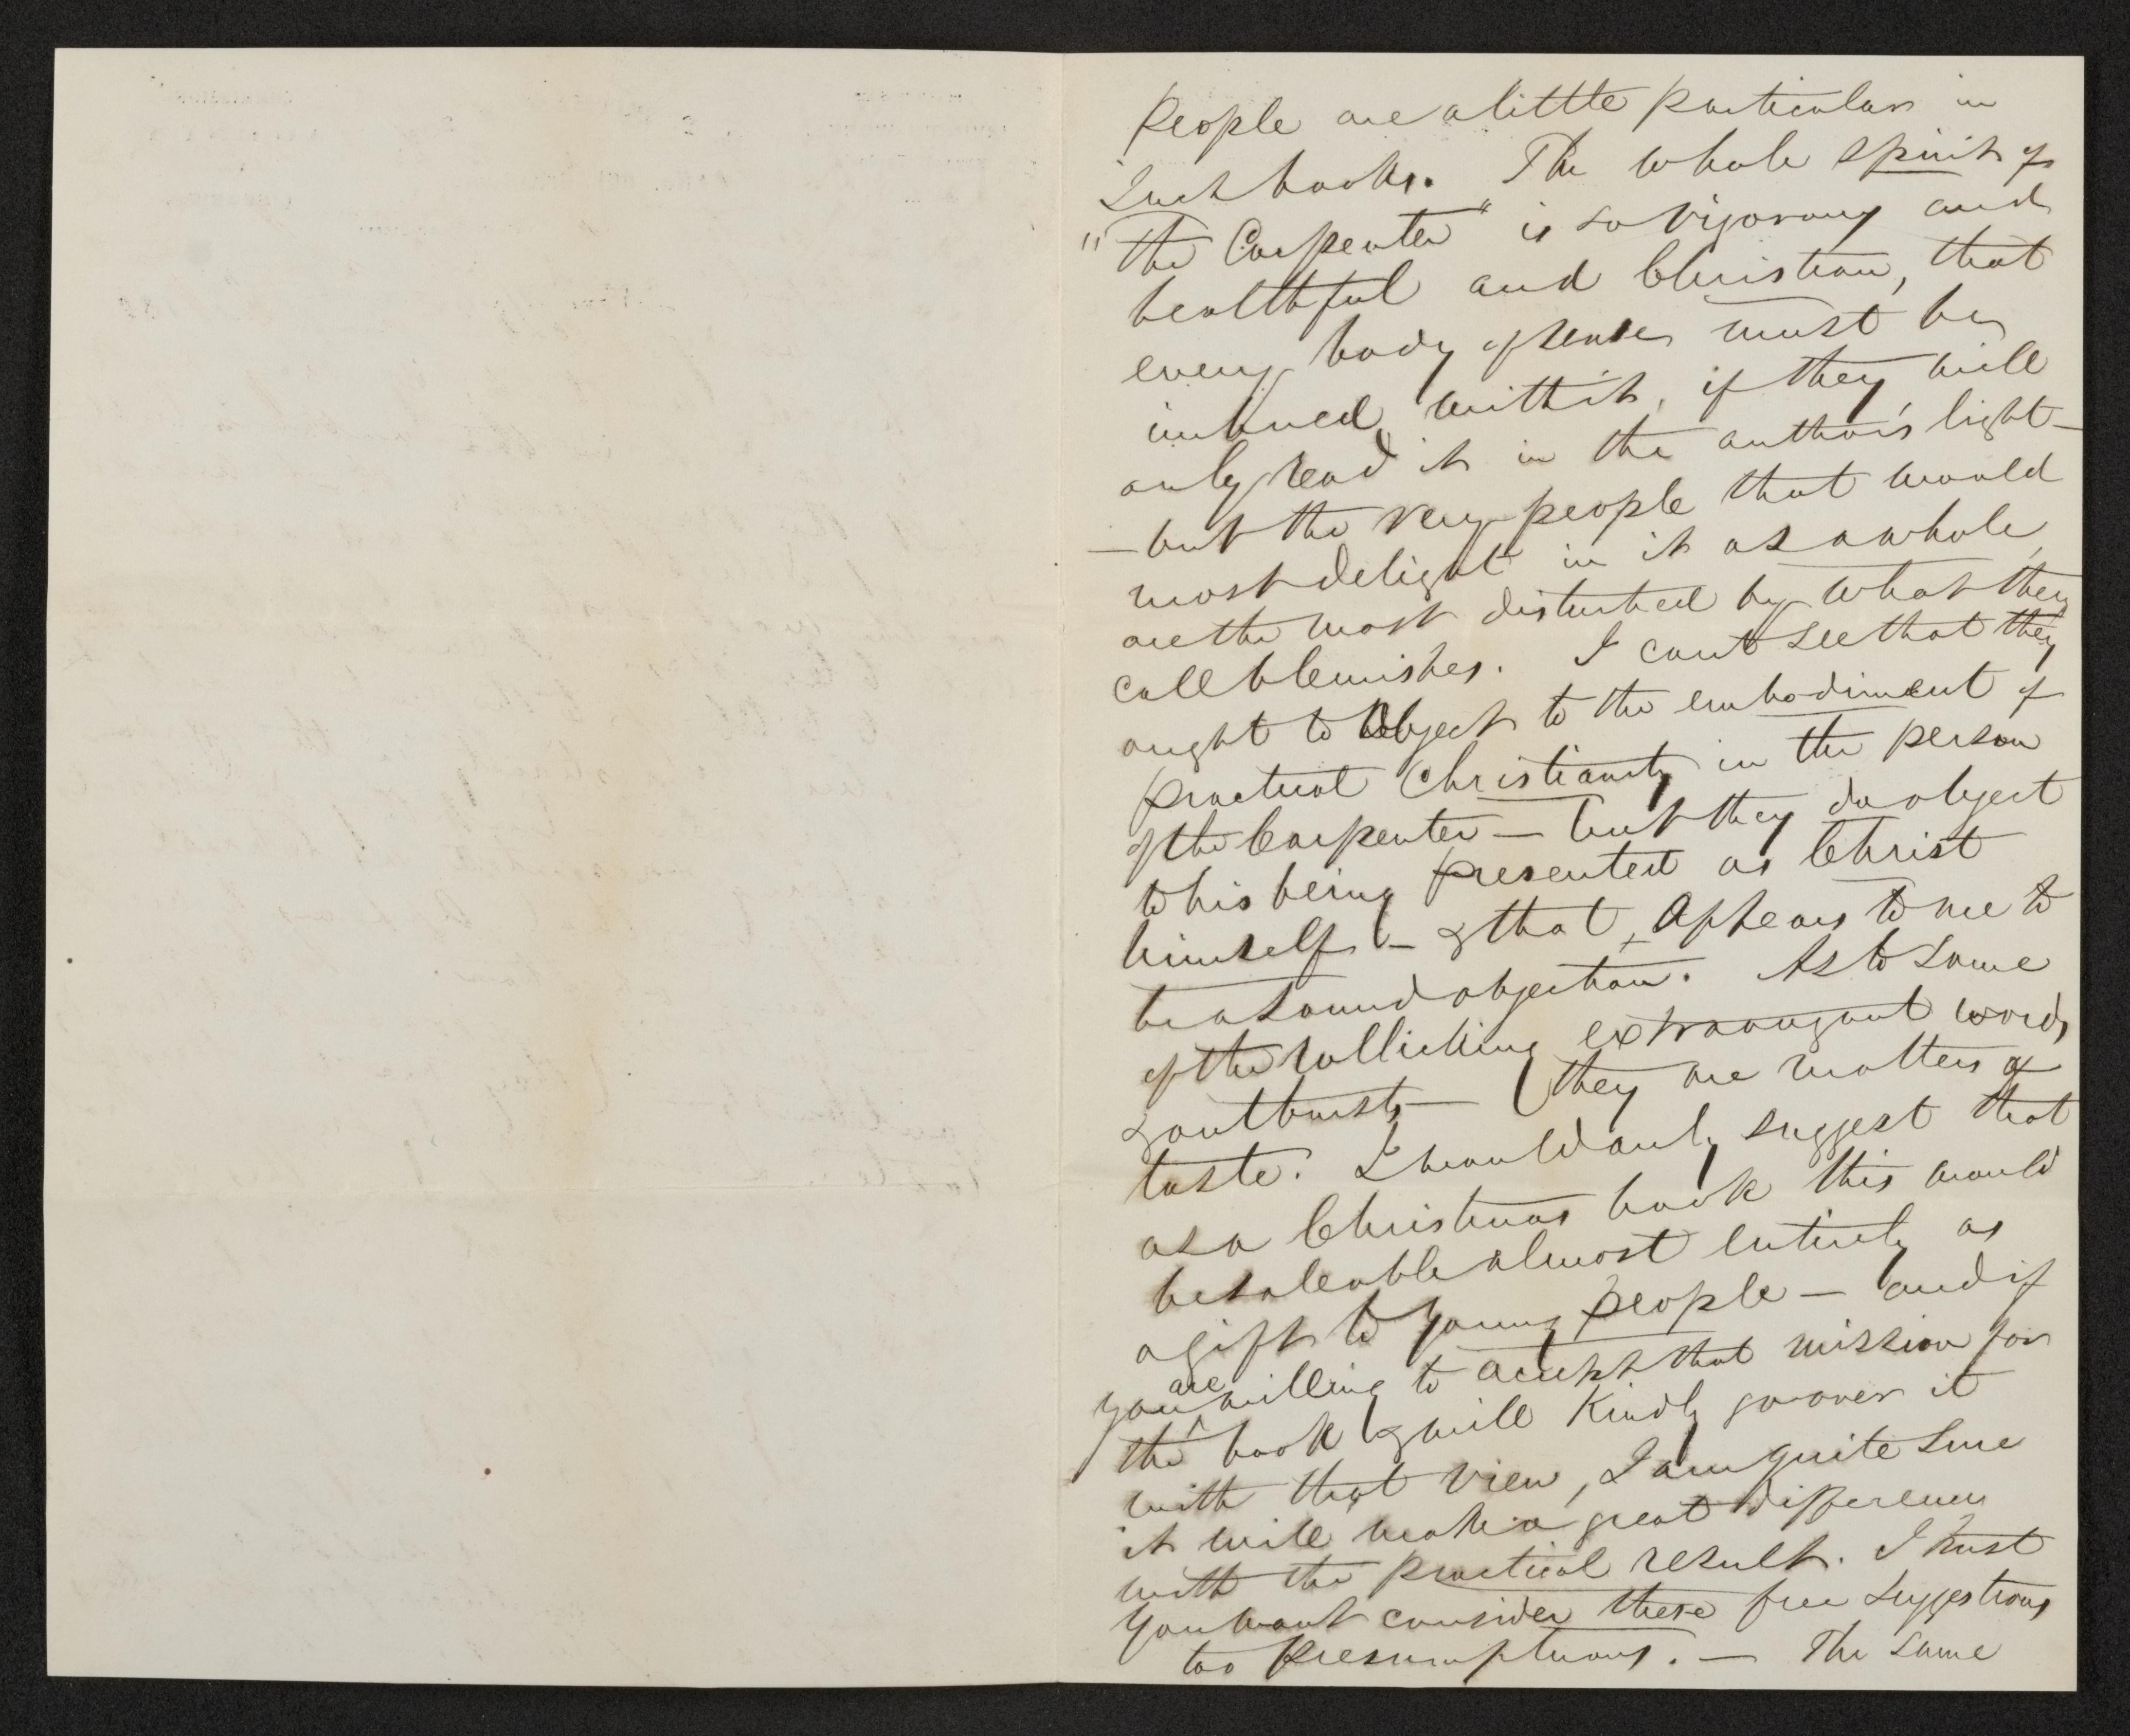 People are a little particular in
such books. The whole spirit of
"The Carpenter" is so vigorous and
healthful and Christian, that
every body of sense must be
imbued with it, if they will
only read it in the author's light—
— but the very people that would
most delight in it as a whole,
are the most disturbed by what they
call blemishes. I can't see that they
ought to object to the embodiment of
practical Christianity in the person
of the Carpenter — but they do object
to his being presented as Christ
himself — & that, appears to me to
be a sound objection. As to some
of the rollicking extravagant words
& outbursts — they are matters of
taste. I would only suggest that
as a Christmas book this would
be saleable almost entirely as
a gift to young people — and if
you are willing to accept that mission for
the book & will kindly go over it
with that view, I am quite sure
it will make a great difference
with the practical result. I trust
you wont consider these free suggestions
too presumptuous. — The same